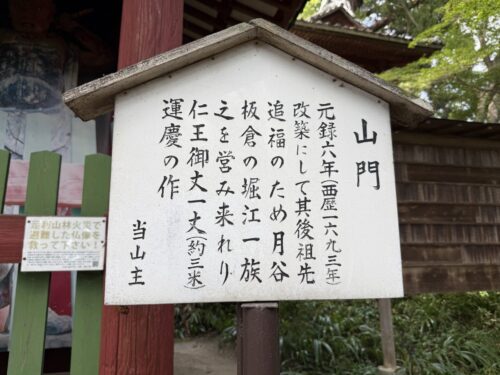 山門
元録六年(西歴一六九三年)
改築にして其後祖先
追福のため月谷
板倉の堀江一族
之を営み来れり
仁王御丈一丈(約三米)
運慶の作
当山主
足利山林火災で
避難した仏像を
救って下さい!